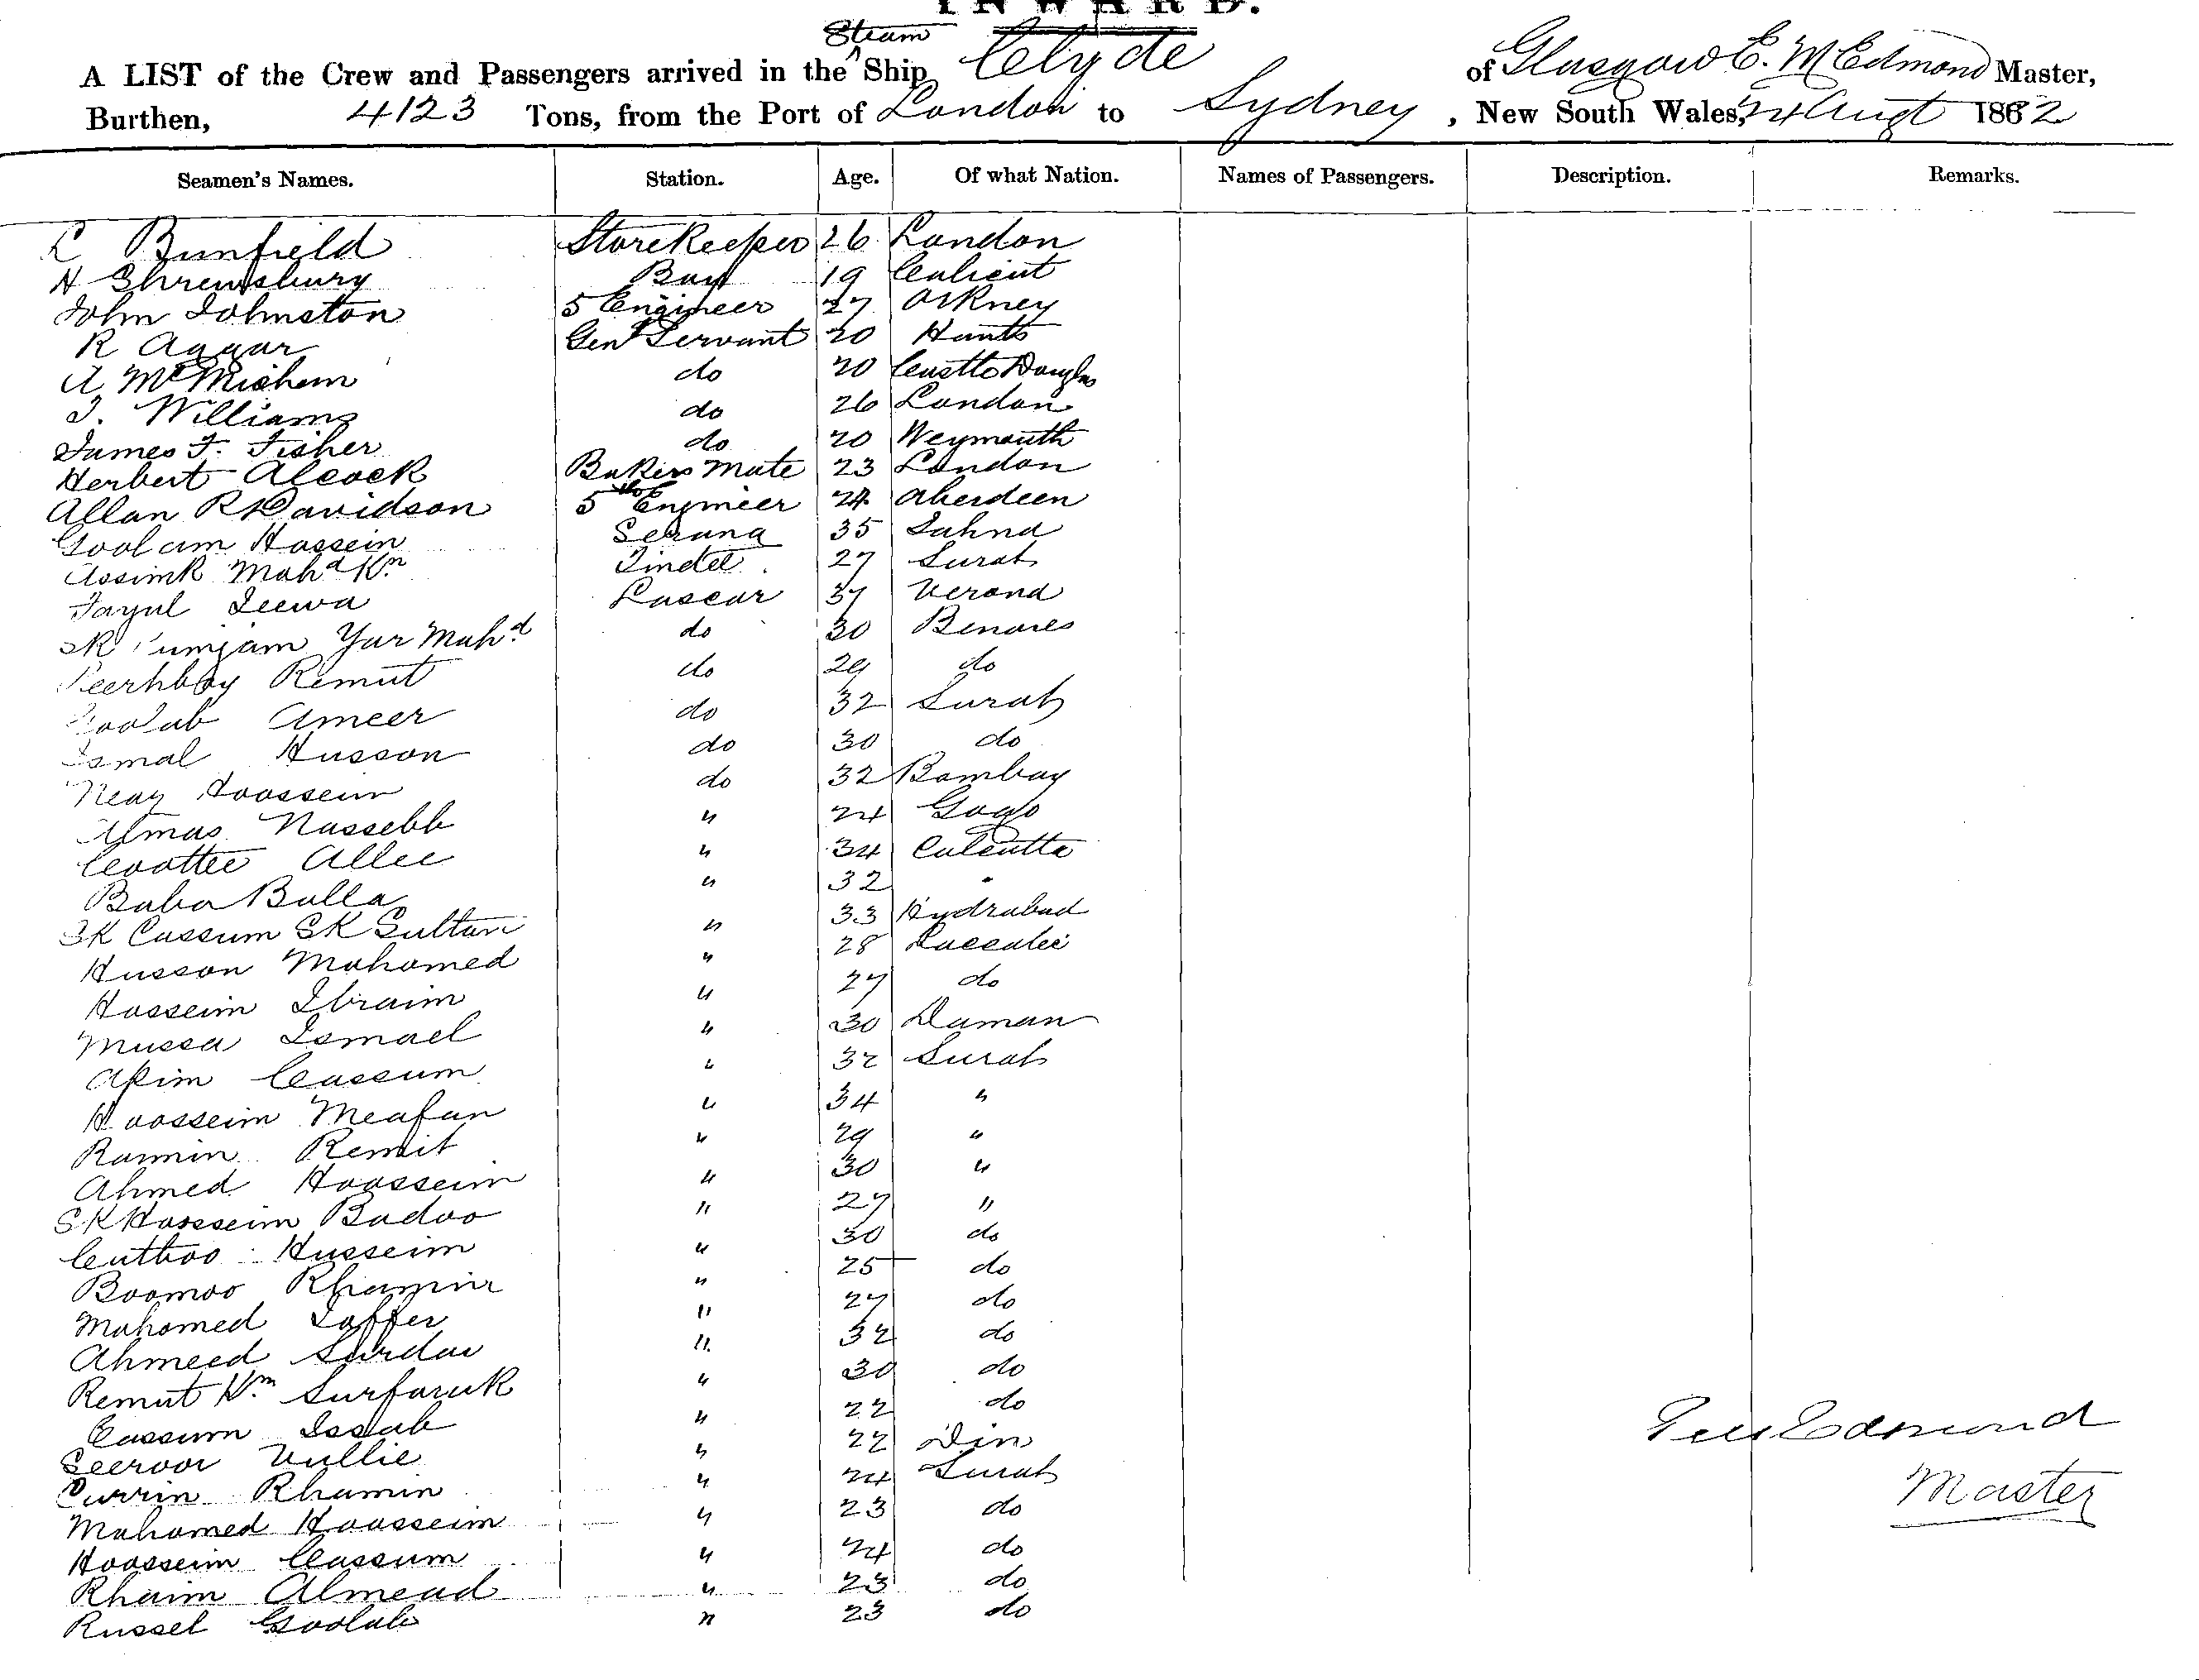 INWARD.
A LIST of the Crew and Passengers arrived in the Steam Ship Clyde of Glasgow E. McEdmond Master,
Burthen, 4123 Tons, from the Port of London to Sydney, New South Wales, 24 Augt 1882
Seamen's Names. Station. Age. Of what Nation. Names of Passengers. Description. Remarks.
L Bunfield Storekeeper 26 London
H Shrewsbury Boy 19 Calicut
John Johnston 5 Engineer 27 Orkney
R Aggar Genl Servant 20 Hants
A McMichem do 20 Castle Douglas
J. Williams do 26 London
James F. Fisher do 20 Weymouth
Herbert Alcock Bakers Mate 23 London
Allan R Davidson 5th Engineer 24 Aberdeen
Goolam Hossein Serang 35
Assimk Mahd Kn Tindel 27 Surat
Fazul Jeewa Lascar 37 Verona
SK Yar Mahd do 30 Benares
Peerhboy Remut do 29 do
Goolab Ameer do 32 Surat
Ismal Husson do 30 do
Neay Hoossein do 32 Bombay
Almas Nassebb " 24 Gogo
Cvottee Allee " 34 Calcutta
Baba Bulla " 32 "
SK Cassum SK Sultan " 33 Hydrabad
Husson Mahomed " 28
Hosseim Ibraim " 27 do
Mussa Ismael " 30 Daman
Akim Cassum " 32 Surat
Hoosseim Meafan " 34 "
Ramin Remit " 29 "
Ahmed Hoosseim " 30 "
SK Hosseim Badoo " 27 "
Cuttoo Husseim " 30 do
Boomoo Rhamin " 25 do
Mahomed Jaffer " 27 do
Ahmeed Surdar " 32 do
Remut Km Surfaruk " 30 do
Cassum Issab " 22 do
Seeroor Vullie " 22 Diu
Currin Rhamin " 24 Surat
Mahomed Hoosseim " 23 do
Hoosseim Cassum " 24 do
Rhaim Almead " 23 do
Russel Goolab " 23 do
McEdmond
Master